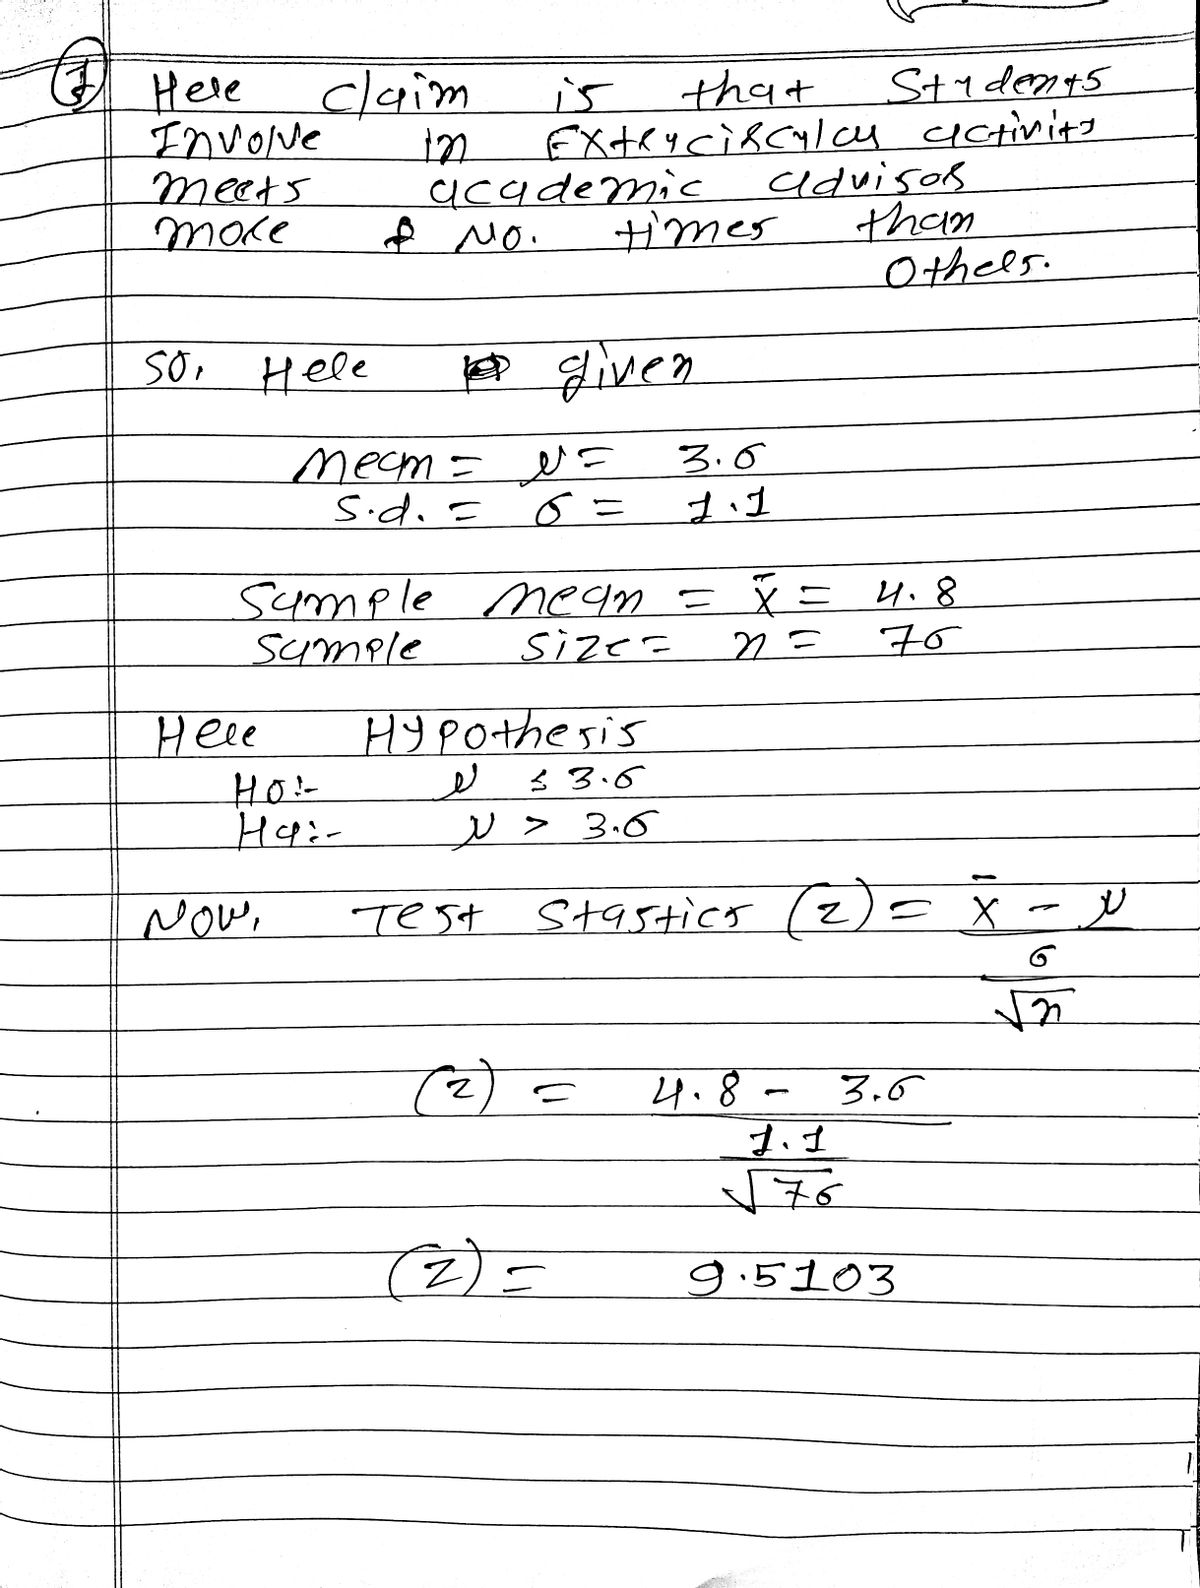 1 Here claim is that Students
Involve in Extracircular activity
meets academic advisor
more No. times than
Others.
So, Here given
Mean = μ = 3.6
S.d. = σ = 1.1
Sample Mean = x̄ = 4.8
Sample size = n = 76
Here Hypothesis
H0:- μ ≤ 3.6
Ha:- μ > 3.6
Now, Test Stastics (z) = x̄ - μ
σ
√n
(z) = 4.8 - 3.6
1.1
√76
(z) = 9.5103